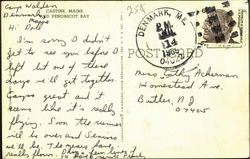 Camp Walden
Denmark, Me
CASTINE, MAINE
AND PENOBSCOT BAY
25¢
Hi Doll
I'm sorry I didn't
get to see you before I
left but one of these
days we'll get together.
Camp's great and it
seems like it's really
flying. Soon the summer
will be over and Seniors
we'll be. The years have
really flown.
POST CARD
DENMARK, ME
PM
14
04022
Miss Cathy Ackerman
Homestead Ave.
Butler, NJ
07405